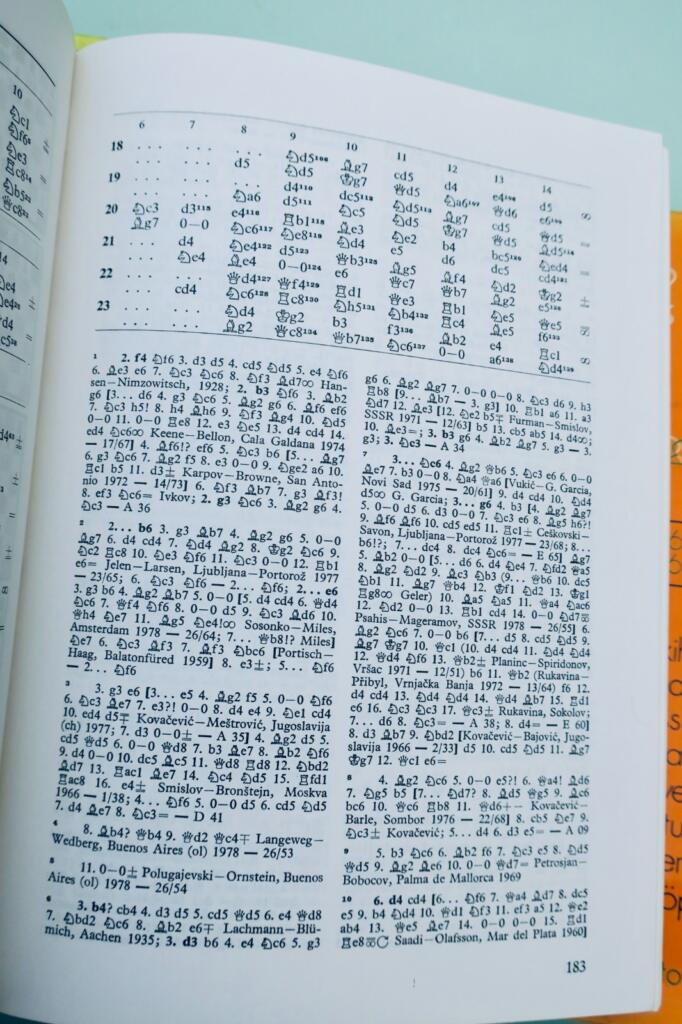 10
♘c1
♘f6
♘e3
♖c8
♘b5
♕c8
6 7 8 9 10 11 12 13 14
18 . . . . . . . . . ♘d5¹⁰⁸ ♗g7 cd5 d4 e4 d5 ∞
. . . . . . d5 ♘d5 ♔g7 ♕d5 ♘a6 ♕d6 e6
19 . . . . . . . . . d4¹¹⁰ dc5 ♘d5 ♗g7 cd5 ♕d5 =
. . . . . . ♘a6 d5¹¹¹ ♘c5 ♘d5 ♔g7 ♕d5 ♗d5
20 ♘c3 d3¹¹⁵ e4¹¹⁶ ♖b1¹¹⁸ ♗e3 ♘e2 b4 bc5 ♘ed4 =
♗g7 0—0 ♘c6¹¹⁷ ♘e8¹¹⁹ ♘d4 e5 d6 dc5 cd4
21 . . . d4 ♘e4¹²² d5¹²³ ♕b3¹²⁵ ♗g5 ♗f4 ♘d2 ♔g2 ±
. . . ♘e4 ♗e4 0—0¹²⁴ e6 ♕c7 ♕b7 ♗g2 ♘e5
22 . . . . . . ♕d4¹²⁷ ♕f4¹²⁹ ♖d1 ♕e3 ♖b1 ♘e5 ♕e5
. . . cd4 ♘c6¹²⁸ ♖c8¹³⁰ ♘h5¹³¹ ♘b4¹³² ♖c4 ♗e5 f6¹³³
23 . . . . . . ♘d4 ♔g2 b3 f3¹³⁶ ♗b2 e4 ♖c1 ∞
. . . . . . ♗g2 ♕c8¹³⁴ ♕b7¹³⁵ ♘c6¹³⁷ 0—0 a6¹³⁸ ♘d4¹³⁹
¹ 2. f4 ♘f6 3. d3 d5 4. cd5 ♘d5 5. e4 ♘f6
6. ♗e3 e6 7. ♘c3 ♘c6 8. ♘f3 ♗d7∞ Han-
sen—Nimzowitsch, 1928; 2. b3 ♘f6 3. ♗b2
g6 [3... d6 4. g3 ♘c6 5. ♗g2 g6 6. ♗f6 ef6
7. ♘c3 h5! 8. h4 ♗h6 9. ♘f3 ♗g4 10. ♘d5
0—0 11. 0—0 ♖e8 12. e3 ♘e5 13. d4 cd4 14.
ed4 ♘c6∞ Keene—Bellon, Cala Galdana 1974
— 17/67] 4. ♗f6!? ef6 5. ♘c3 b6 [5... ♗g7
6. g3 ♘c6 7. ♗g2 f5 8. e3 0—0 9. ♘ge2 a6 10.
♖c1 b5 11. d3± Karpov—Browne, San Anto-
nio 1972 — 14/73] 6. ♘f3 ♗b7 7. g3 ♗f3!
8. ef3 ♘c6= Ivkov; 2. g3 ♘c6 3. ♗g2 g6 4.
♘c3 — A 36
² 2... b6 3. g3 ♗b7 4. ♗g2 g6 5. 0—0
♗g7 6. d4 cd4 7. ♘d4 ♗g2 8. ♔g2 ♘c6 9.
♘c2 ♖c8 10. ♘e3 ♘f6 11. ♘c3 0—0 12. ♗b1
e6= Jelen—Larsen, Ljubljana—Portorož 1977
— 23/65; 6. ♘c3 ♘f6 — 2... ♘f6; 2... e6
3. g3 b6 4. ♗g2 ♗b7 5. 0—0 [5. d4 cd4 6. ♕d4
♘c6 7. ♕f4 ♘f6 8. 0—0 d5 9. ♘c3 ♗d6 10.
♕h4 ♘e7 11. ♗g5 ♘e4!∞ Sosonko—Miles,
Amsterdam 1978 — 26/64; 7... ♕b8!? Miles]
♘e7 6. ♘c3 ♗f3 7. ♗f3 ♘bc6 [Portisch—
Haag, Balatonfüred 1959] 8. e3±; 5... ♘f6
— 2... ♘f6
³ 3. g3 e6 [3... e5 4. ♗g2 f5 5. 0—0 ♘f6
6. ♘c3 ♗e7 7. e3?! 0—0 8. d4 e4 9. ♘e1 cd4
10. ed4 d5∓ Kovačević—Meštrović, Jugoslavija
(ch) 1977; 7. d3 0—0± — A 35] 4. ♗g2 d5 5.
cd5 ♕d5 6. 0—0 ♕d8 7. b3 ♗e7 8. ♗b2 ♘f6
9. d4 0—0 10. dc5 ♗c5 11. ♕d8 ♖d8 12. ♘bd2
♗d7 13. ♖ac1 ♗e7 14. ♘c4 ♘d5 15. ♖fd1
♖ac8 16. e4± Smislov—Bronštejn, Moskva
1966 — 1/38; 4... ♘f6 5. 0—0 d5 6. cd5 ♘d5
7. d4 ♗e7 8. ♘c3= — D 41
⁴ 8. ♗b4? ♕b4 9. ♕d2 ♕c4∓ Langeweg—
Wedberg, Buenos Aires (ol) 1978 — 26/53
⁵ 11. 0—0± Polugajevski—Ornstein, Buenos
Aires (ol) 1978 — 26/54
⁶ 3. b4? cb4 4. d3 d5 5. cd5 ♕d5 6. e4 ♕d8
7. ♘bd2 ♘c6 8. ♗b2 e6∓ Lachmann—Blü-
mich, Aachen 1935; 3. d3 b6 4. e4 ♘c6 5. g3
g6 6. ♗g2 ♗g7 7. 0—0 0—0 8. ♘c3 d6 9. h3
♖b8 [9... ♗b7 — 3. g3] 10. ♖b1 a6 11. a3
♘d7 12. ♗e3 [12. ♘e2 b5∓ Furman—Smislov,
SSSR 1971 — 12/63] b5 13. cb5 ab5 14. d4∞;
10. ♗e3=; 3. b3 g6 4. ♗b2 ♗g7 5. g3 — 3.
g3; 3. ♘c3 — A 34
⁷ 3... ♘c6 4. ♗g2 ♕b6 5. ♘c3 e6 6. 0—0
♗e7 7. b3 0—0 8. ♘a4 ♕a6 [Vukić—G. Garcia,
Novi Sad 1975 — 20/61] 9. d4 cd4 10. ♘d4
d5∞ G. Garcia; 3... g6 4. b3 [4. ♗g2 ♗g7
5. 0—0 d5 6. d3 0—0 7. ♘c3 e6 8. ♗g5 h6?!
9. ♗f6 ♗f6 10. cd5 ed5 11. ♖c1± Ceškovski—
Savon, Ljubljana—Portorož 1977 — 23/68; 8...
b6!?; 7... dc4 8. dc4 ♘c6= — E 65] ♗g7
5. ♗b2 0—0 [5... d6 6. d4 ♘e4 7. ♘fd2 ♕a5
8. ♗g2 ♘d2 9. ♘c3 ♘b3 (9... ♕b6 10. dc5
♘b1 11. ♗g7 ♕b4 12. ♔f1 ♘d2 13. ♔g1
♖g8∞ Geler) 10. ♗a5 ♘a5 11. ♕a4 ♘ac6
12. ♘d2 0—0 13. ♖b1 cd4 14. 0—0 ♘d7
Psahis—Mageramov, SSSR 1978 — 26/55] 6.
♗g2 ♘c6 7. 0—0 b6 [7... d5 8. cd5 ♘d5 9.
♗g7 ♔g7 10. ♕c1 (10. d4 cd4 11. ♘d4 ♘d4
12. ♕d4 ♘f6 13. ♕b2± Planinc—Spiridonov,
Vršac 1971 — 12/51) b6 11. ♕b2 (Rukavina—
Přibyl, Vrnjačka Banja 1972 — 13/64) f6 12.
d4 cd4 13. ♘d4 ♘d4 14. ♕d4 ♗b7 15. ♖d1
e6 16. ♘c3 ♘c3 17. ♕c3± Rukavina, Sokolov;
7... d6 8. ♘c3= — A 38; 8. d4= — E 60]
8. d3 ♗b7 9. ♘bd2 [Kovačević—Bajović, Jugo-
slavija 1966 — 2/33] d5 10. cd5 ♘d5 11. ♗g7
♔g7 12. ♕c1 e6=
⁸ 4. ♗g2 ♘c6 5. 0—0 e5?! 6. ♕a4! ♗d6
7. ♘g5 b5 [7... ♘d7? 8. ♗d5 ♕g5 9. ♗c6
bc6 10. ♕c6 ♖b8 11. ♕d6+— Kovačević—
Barle, Sombor 1976 — 22/68] 8. cb5 ♘e7 9.
♘c3± Kovačević; 5... d4 6. d3 e5= — A 09
⁹ 5. b3 ♘c6 6. ♗b2 f6 7. ♘c3 e5 8. ♘d5
♕d5 9. ♗g2 ♗e6 10. 0—0 ♕d7= Petrosjan—
Bobocov, Palma de Mallorca 1969
¹⁰ 6. d4 cd4 [6... ♘f6 7. ♕a4 ♗d7 8. dc5
e5 9. b4 ♘d4 10. ♕d1 ♘f3 11. ef3 a5 12. ♕e2
ab4 13. ♕e5 ♗e7 14. 0—0 0—0 15. ♖d1
♖e8 Saadi—Olafsson, Mar del Plata 1960]
183